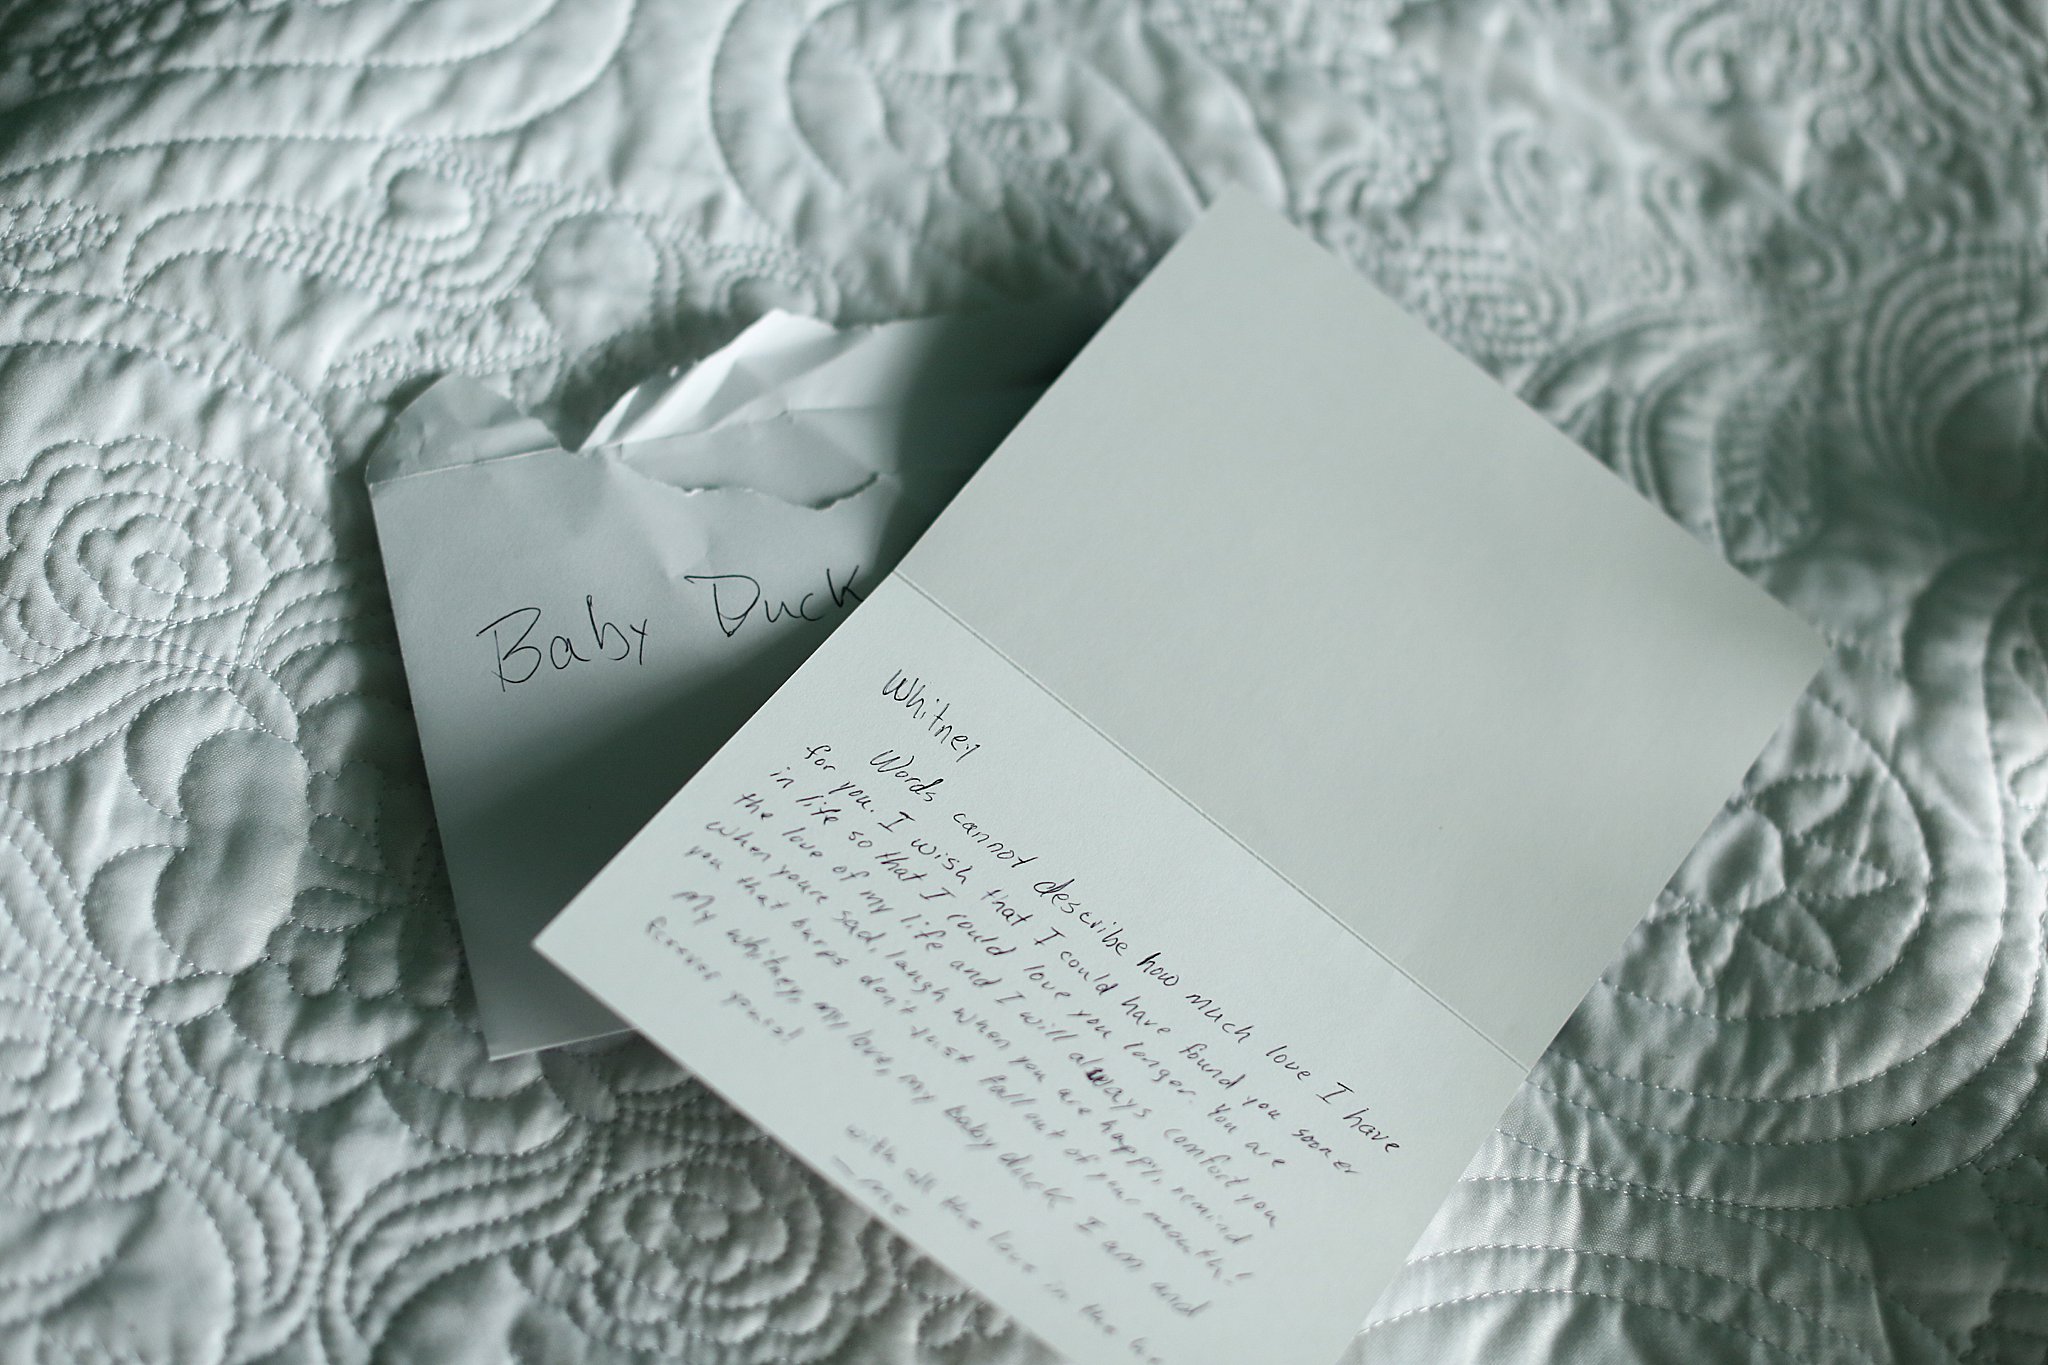 Baby Duck
Whitney
Words cannot describe how much love I have
for you. I wish that I could have found you sooner
in life so that I could love you longer. You are
the love of my life and I will always comfort you
when youre sad, laugh when you are happy, remind
you that burps don't just fall out of your mouth!
My whitney, my love, my baby duck I am and
forever yours!
with all the love in the